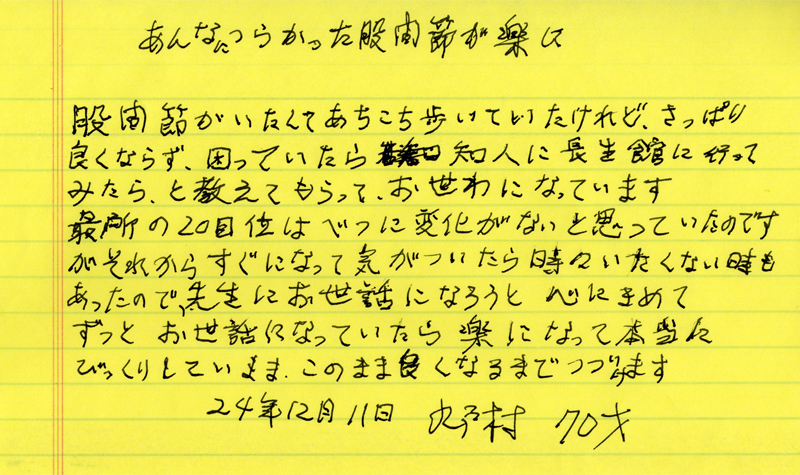 あんなにつらかった股関節が楽に
股関節がいたくてあちこち歩いていたけれど、さっぱり
良くならず、困っていたら 知人に長生館に行って
みたら、と教えてもらって、お世わになっています
最所の20日位はべつに変化がないと思っていたのです
がそれからすぐになって気がついたら時々いたくない時も
あったので、先生にお世話になろうと心にきめて
ずっとお世話になっていたら楽になって本当に
びっくりしていまま、このまま良くなるまでつづけます
24年12月11日 野村 70才